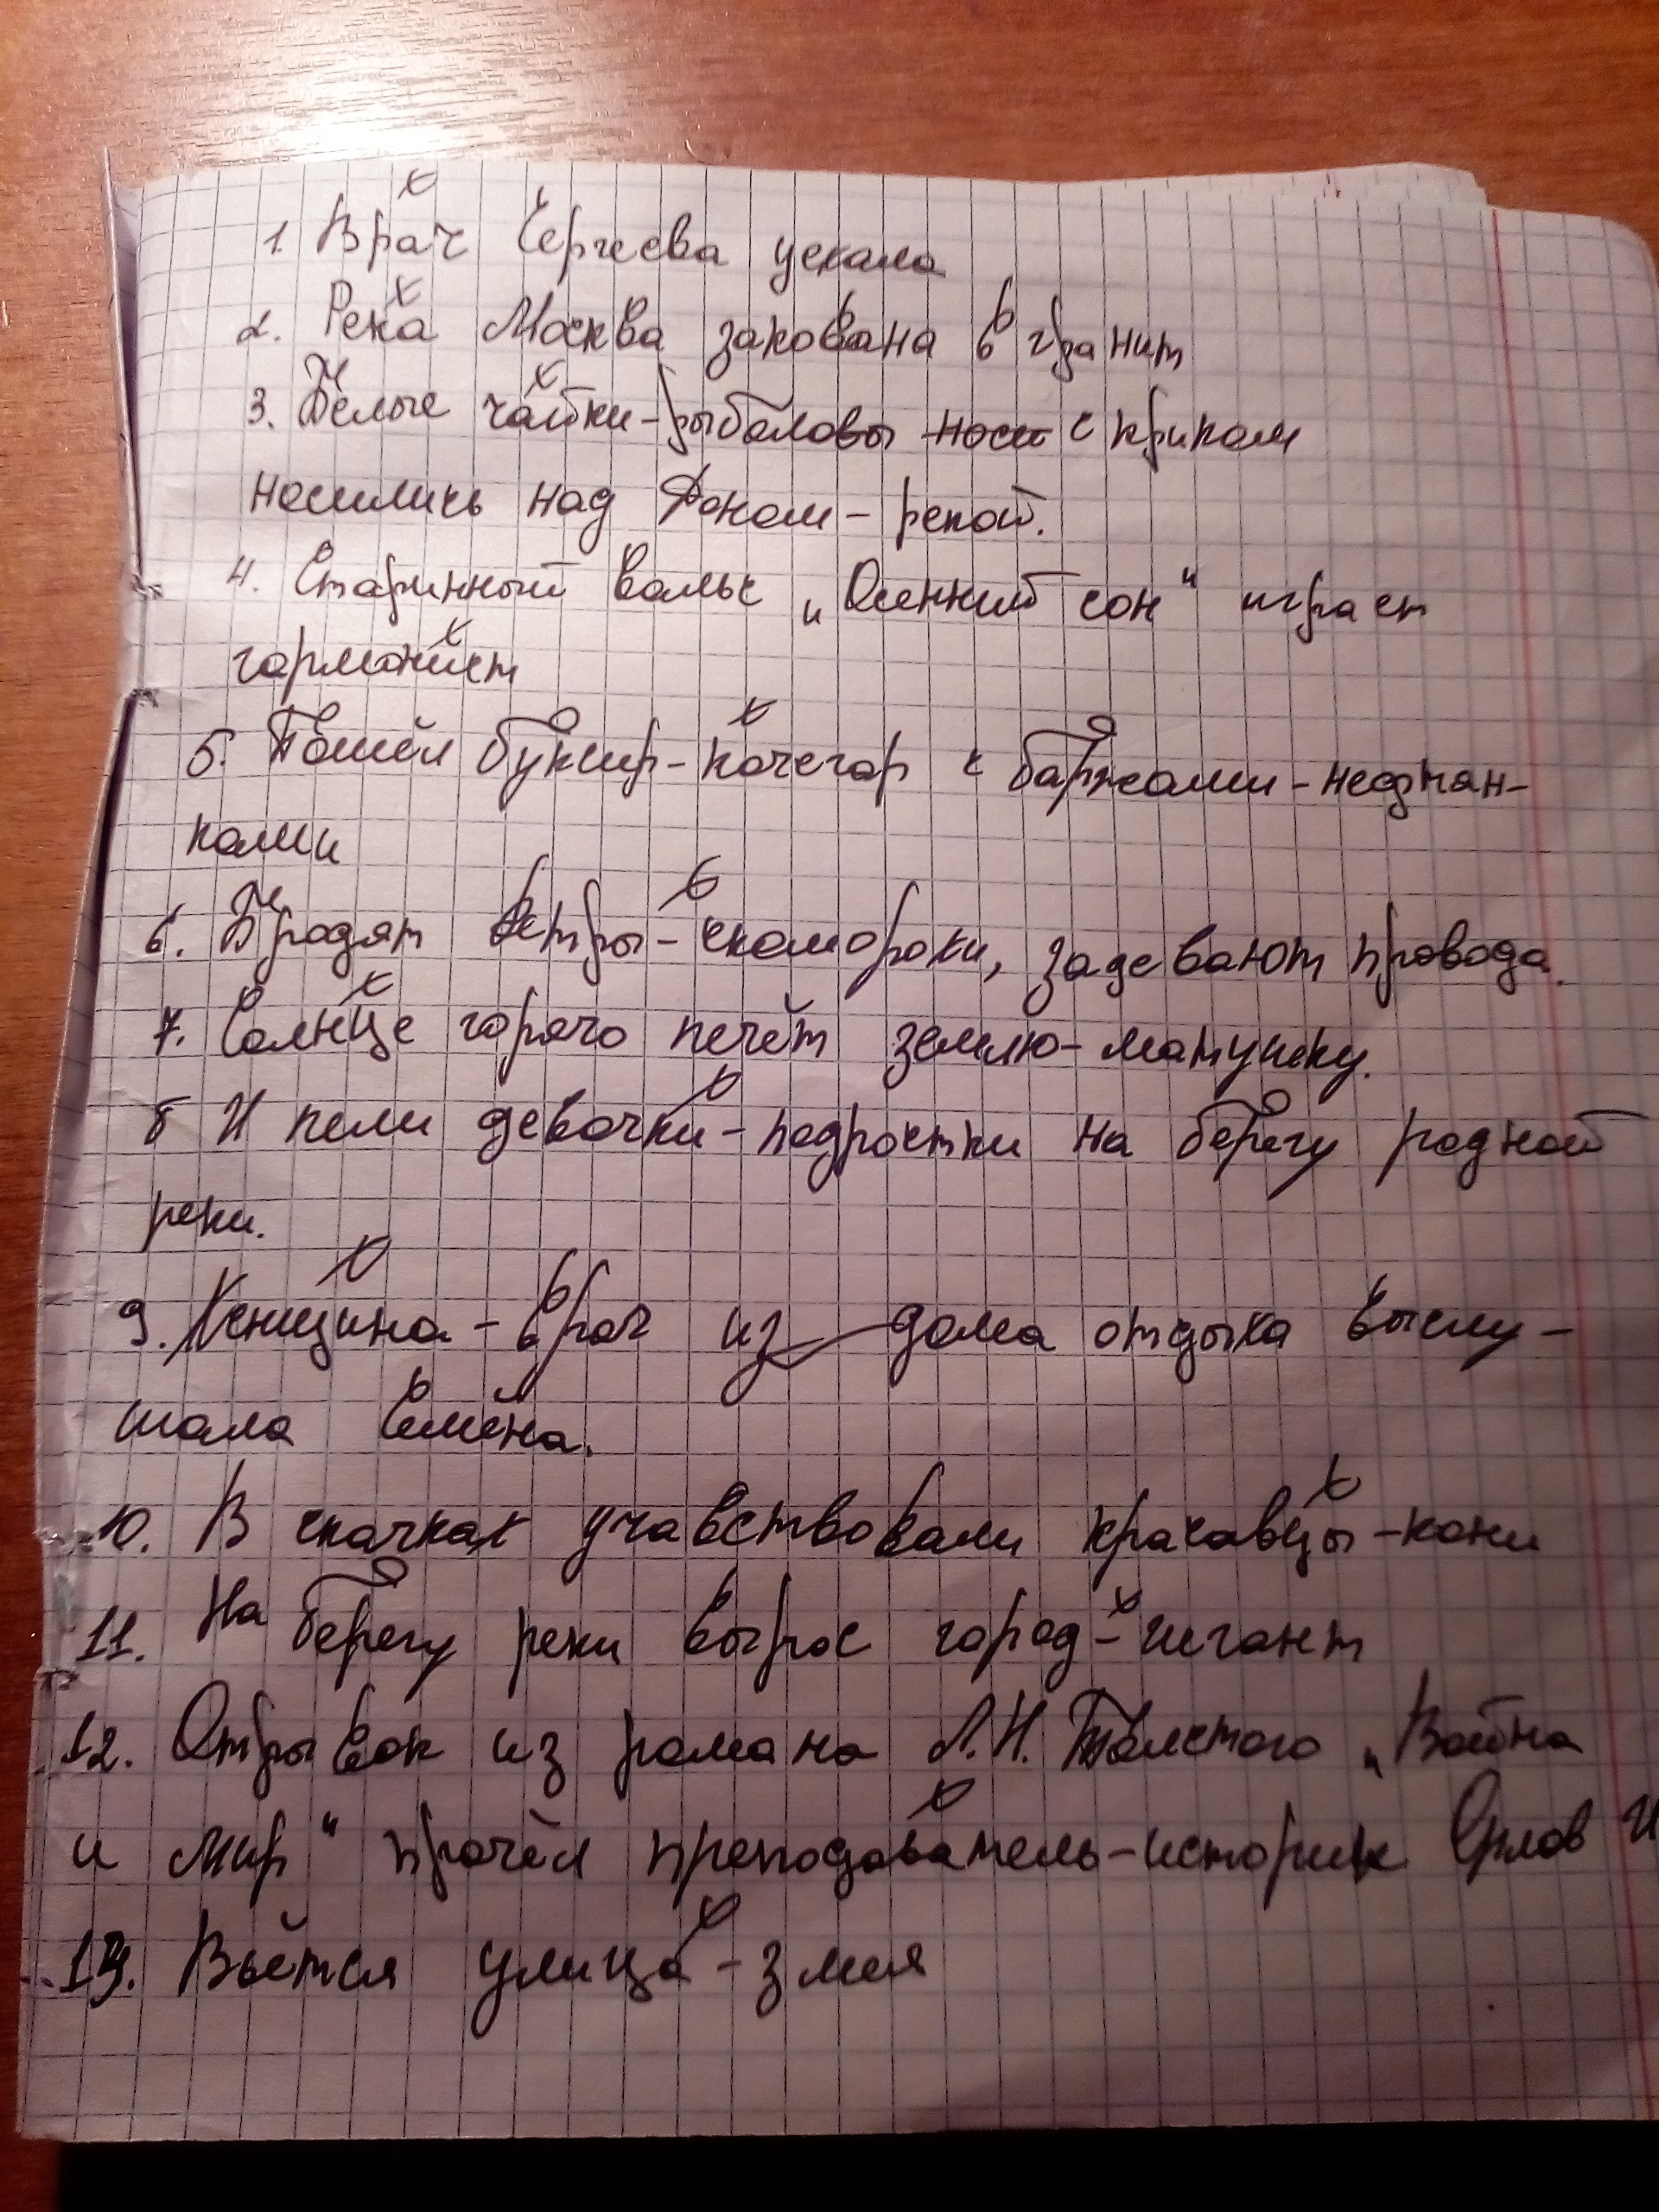 х
1. Врач Сергеева уехала
х
2. Река Москва закована в гранит
х
3. Белые чайки-рыболовы носи с криком
носились над Доном-рекой.
4. Старинный вальс „Осенний сон" играет
х
гармонист
х
5. Пошёл буксир-кочегар с баржами-нефтян-
ками
х
6. Бродят ветры-скоморохи, задевают провода.
х
7. Солнце горячо печёт землю-матушку.
х
8 И пели девочки-подростки на берегу родной
реки.
х
9. Женщина-врач из дома отдыха выслу-
шала Семёна.
х
10. В скачках учавствовали красавцы-кони
х
11. На берегу реки вырос город-гигант
12. Отрывок из романа Л.Н. Толстого „Война
х
и Мир" прочёл преподаватель-историк Орлов И
х
13. Вьётся улица-змея